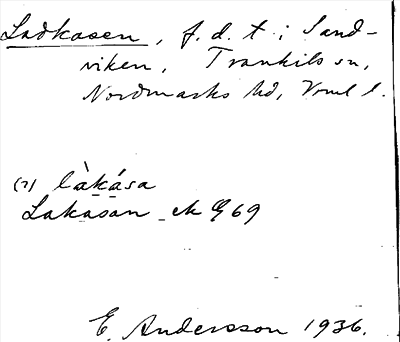 Ladkasen, f. d. t. i Sand-
viken, Trankils sn,
Nordmarks hd, Vrml l.
(?) làkása
Lakasan ek G 69
E. Andersson 1936.